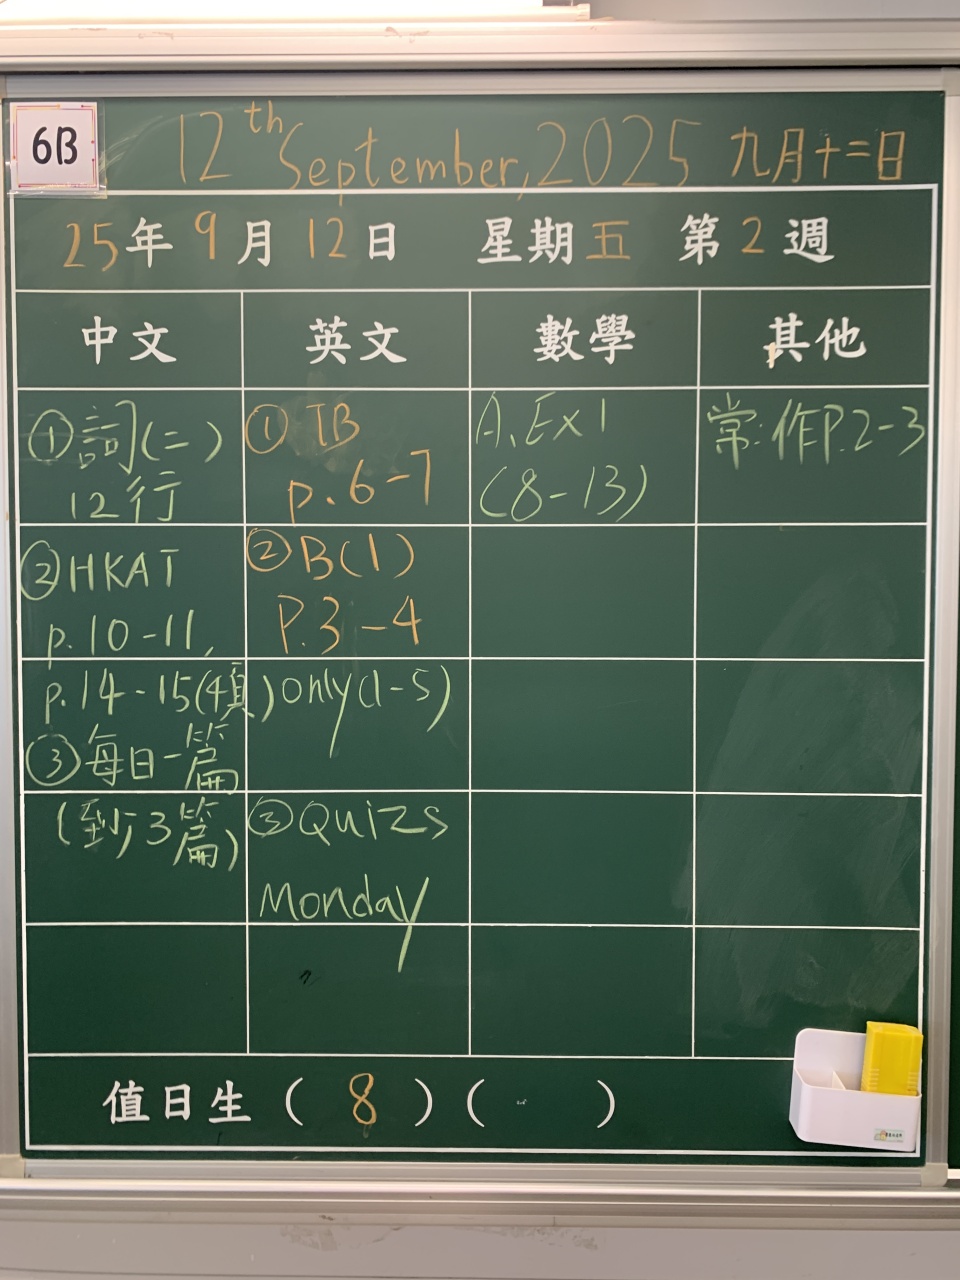 6B
12th September, 2025 九月十二日
25年9月12日 星期五 第2週
中文
英文
數學
其他
①詞(二)
12行
②HKAT
p.10-11,
p.14-15(4題)
③每日一篇
(到,3篇)
①TB
p.6-7
②B(1)
P.3-4
only(1-5)
③Quizs
Monday
A.Ex1
(8-13)
常:作P.2-3
值日生(8)( )